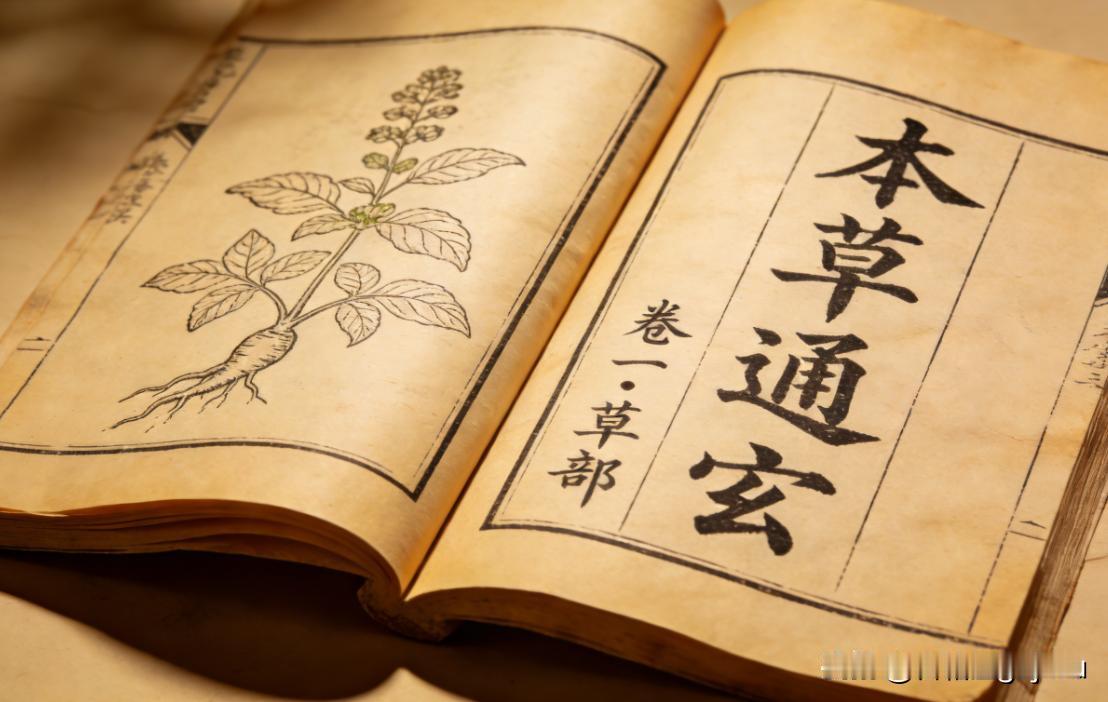 本草通玄
卷一·草部